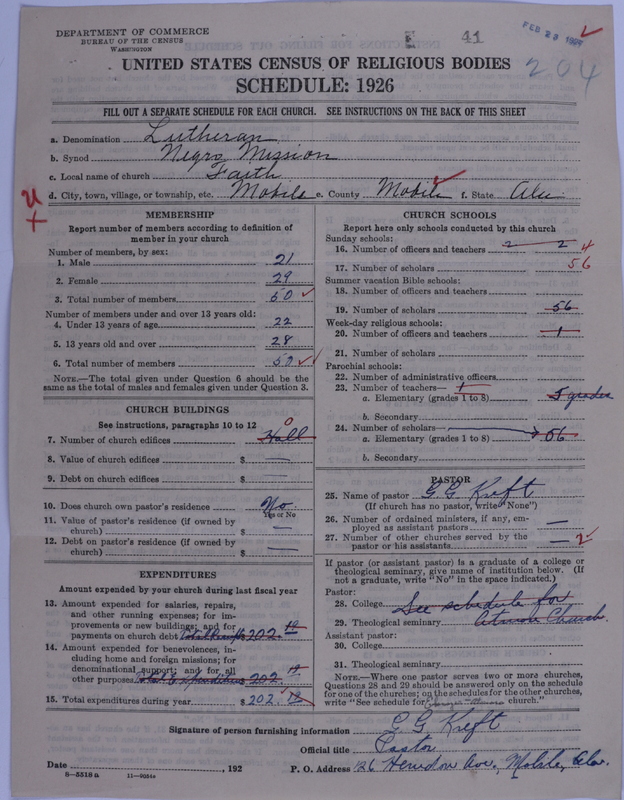 DEPARTMENT OF COMMERCE
BUREAU OF THE CENSUS
WASHINGTON
E 41
FEB 23
204
UNITED STATES CENSUS OF RELIGIOUS BODIES
SCHEDULE: 1926
FILL OUT A SEPARATE SCHEDULE FOR EACH CHURCH. SEE INSTRUCTIONS ON THE BACK OF THIS SHEET
a. Denomination Lutheran
b. Synod Negro Mission
c. Local name of church Faith
d. City, town, village, or township, etc. Mobile e. County Mobile f. State Ala.
MEMBERSHIP
Report number of members according to definition of
member in your church
Number of members, by sex:
1. Male 21
2. Female 29
3. Total number of members 50
Number of members under and over 13 years old:
4. Under 13 years of age 22
5. 13 years old and over 28
6. Total number of members 50
NOTE.—The total given under Question 6 should be the
same as the total of males and females given under Question 3.
CHURCH BUILDINGS
See instructions, paragraphs 10 to 12
7. Number of church edifices Hall 0
8. Value of church edifices $ —
9. Debt on church edifices $ —
10. Does church own pastor's residence No
Yes or No
11. Value of pastor's residence (if owned by
church) $ —
12. Debt on pastor's residence (if owned by
church) $ —
EXPENDITURES
Amount expended by your church during last fiscal year
13. Amount expended for salaries, repairs,
and other running expenses; for im-
provements or new buildings; and for
payments on church debt 202.
14. Amount expended for benevolences, in-
cluding home and foreign missions; for
denominational support; and for all
other purposes 202.
15. Total expenditures during year $ 202
CHURCH SCHOOLS
Report here only schools conducted by this church
Sunday schools:
16. Number of officers and teachers 2 2 4
17. Number of scholars 56
Summer vacation Bible schools:
18. Number of officers and teachers
19. Number of scholars 56
Week-day religious schools:
20. Number of officers and teachers 1
21. Number of scholars
Parochial schools:
22. Number of administrative officers
23. Number of teachers— 1
a. Elementary (grades 1 to 8) 5 grades
b. Secondary
24. Number of scholars—
a. Elementary (grades 1 to 8) 56
b. Secondary
PASTOR
25. Name of pastor G G Kreft
(If church has no pastor, write "None")
26. Number of ordained ministers, if any, em-
ployed as assistant pastors —
27. Number of other churches served by the
pastor or his assistants — 2
If pastor (or assistant pastor) is a graduate of a college or
theological seminary, give name of institution below. (If
not a graduate, write "No" in the space indicated.)
Pastor:
28. College See schedule for
29. Theological seminary Church
Assistant pastor:
30. College
31. Theological seminary
NOTE.—Where one pastor serves two or more churches,
Questions 28 and 29 should be answered only on the schedule
for one of the churches; on the schedules for the other churches,
write "See schedule for church."
Signature of person furnishing information G G Kreft
Official title Pastor
Date , 192 P. O. Address 126 Herndon Ave., Mobile, Ala.
8—5518 a